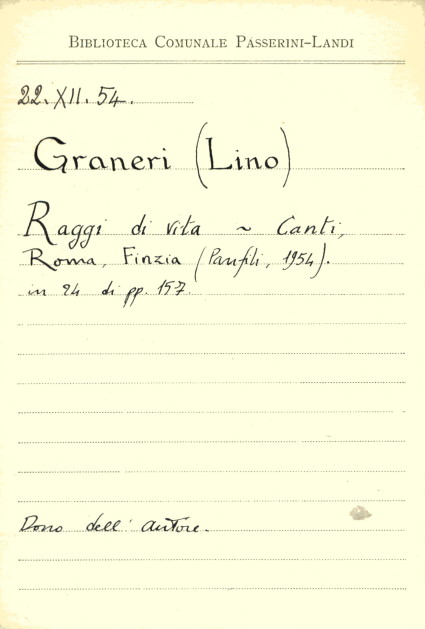 BIBLIOTECA COMUNALE PASSERINI-LANDI
22.XII.54.
Graneri (Lino)
Raggi di vita ~ Canti,
Roma, Finzia (Panfili, 1954).
in 24 di pp. 157.
Dono dell' autore.